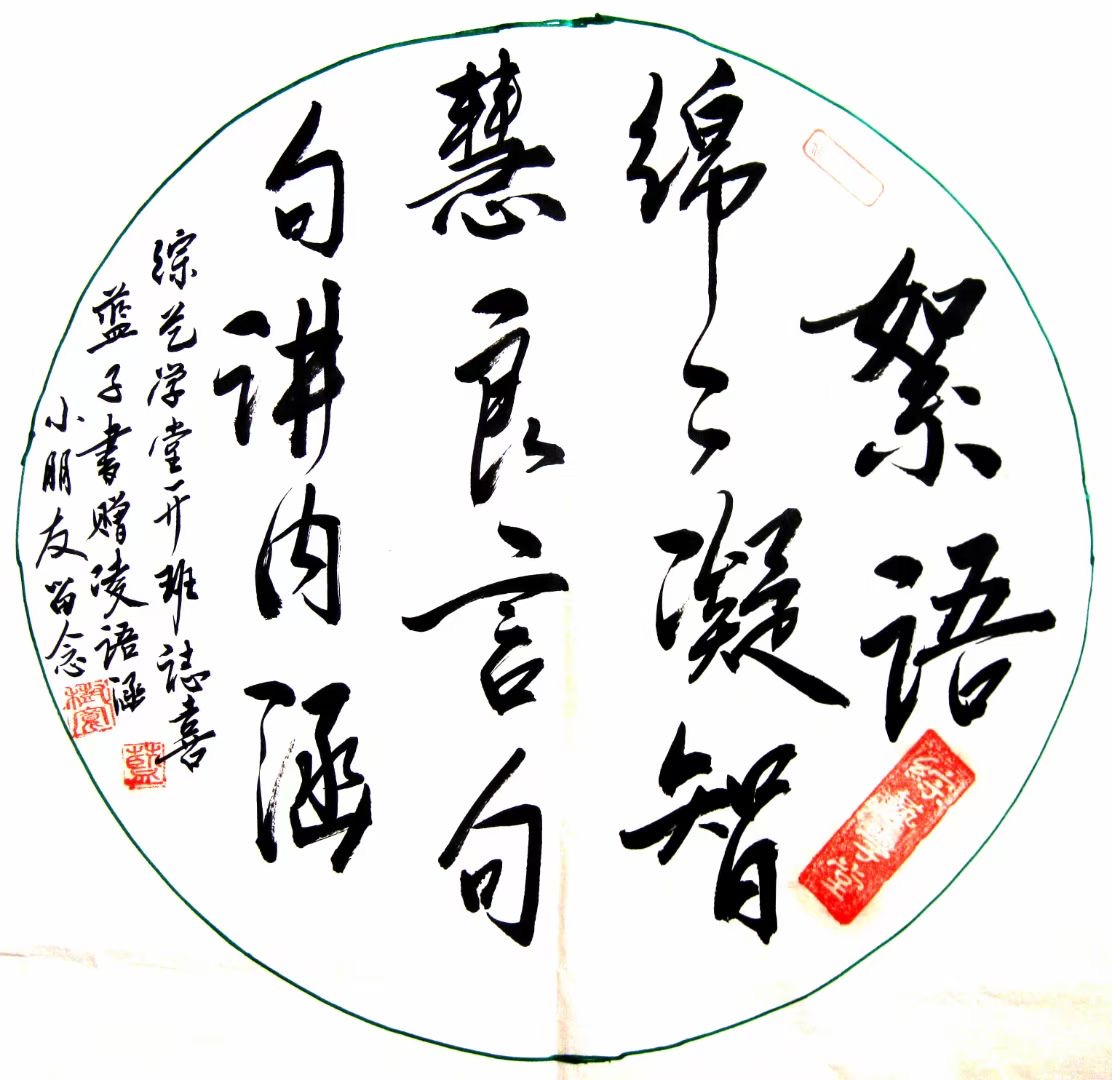 絮语
绵〻凝智
慧良言句
句讲内涵
综艺学堂开班誌喜
蓝子書赠凌语涵
小朋友留念
综艺学堂